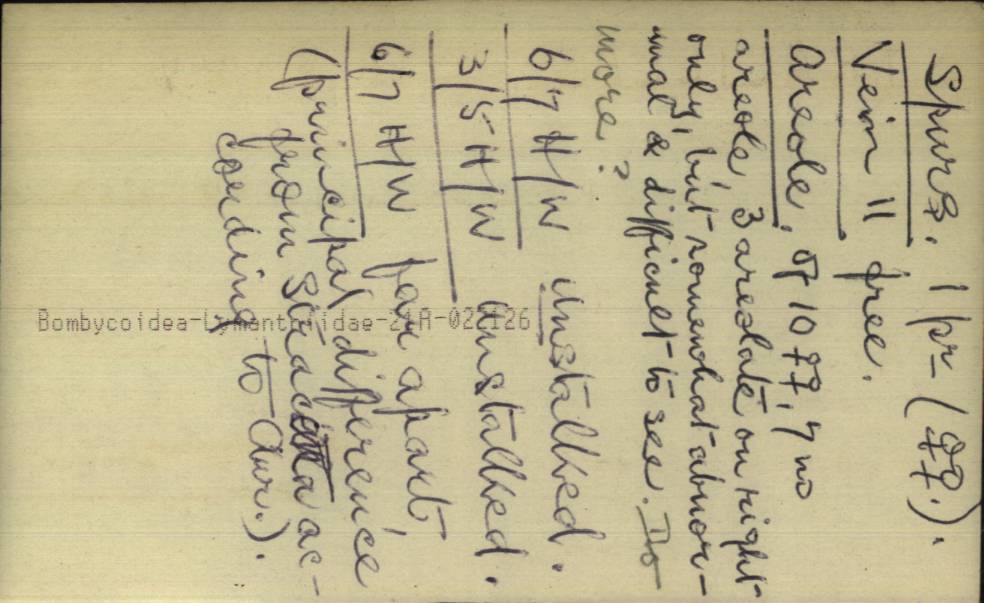 Spurs. 1 pr- (♀♀).
Vein 11 free.
Areole. of 10 ♀♀, 7 no
areole, 3 areolate on right
only, but somewhat abnor-
mal & difficult to see. Do
more?
6/7 H/W unstalked.
3/5 H/W unstalked.
6/7 H/W far apart,
(principal difference
from ac-
cording to Aur.).
Bombycoidea-Lymantriidae-21A-022126